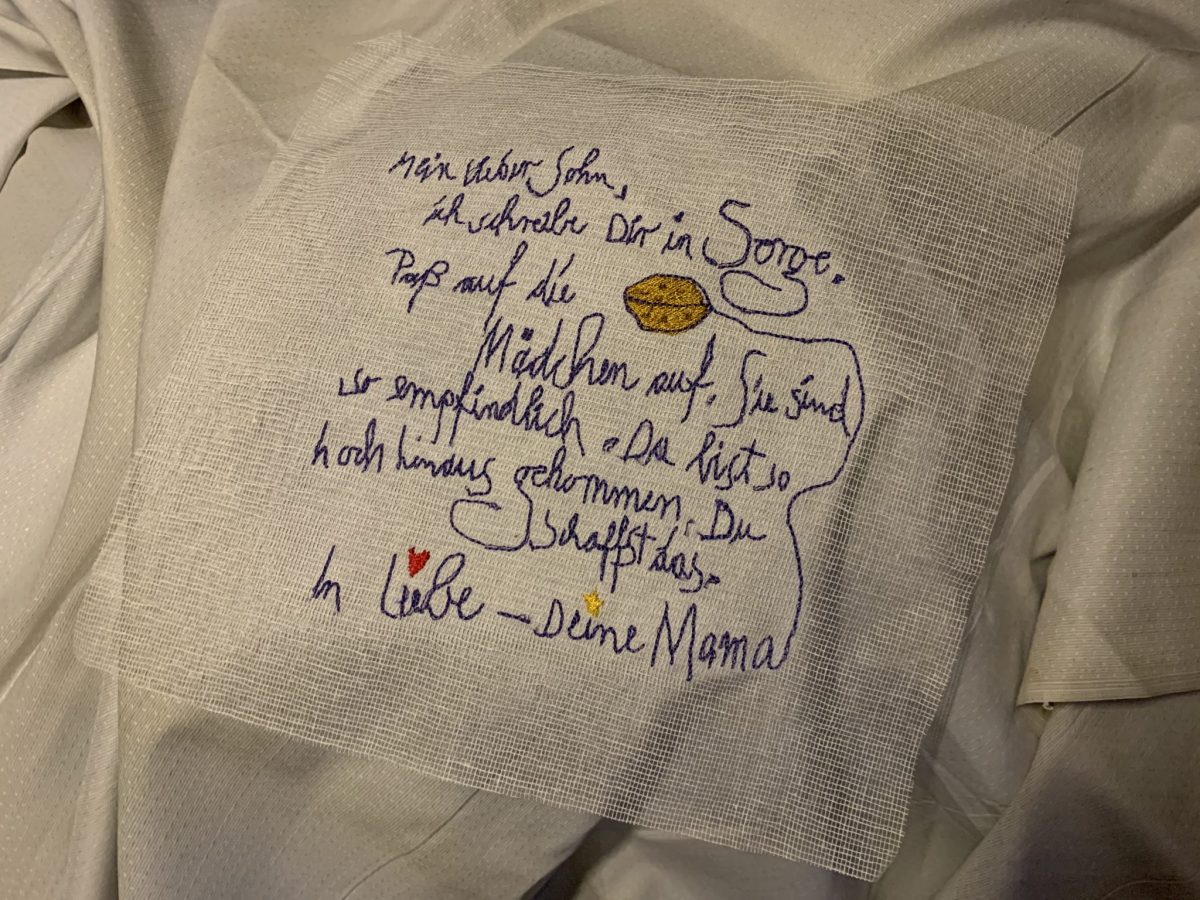 Mein lieber Sohn,
ich schreibe Dir in Sorge.
Paß auf die
Mädchen auf. Sie sind
so empfindlich. Du bist so
hoch hinaus gekommen. Du
schaffst das.
In Liebe – Deine Mama